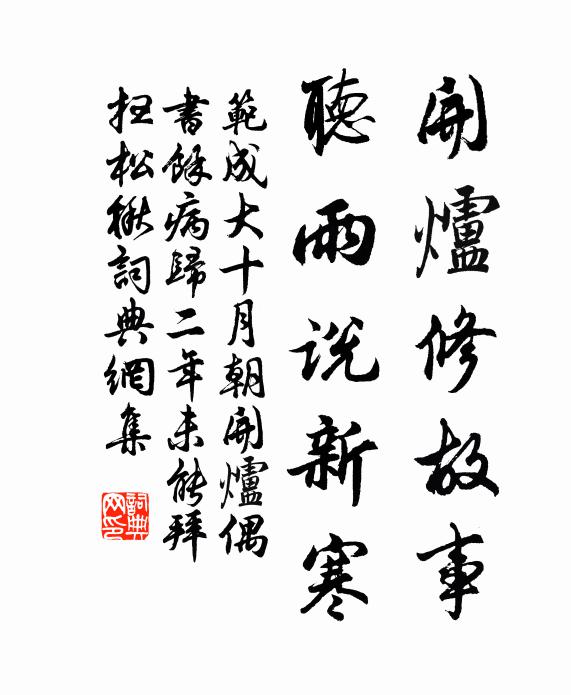 開爐修故事
聽雨説新寒
範成大十月朝開爐偶
書餘病歸二年未能拜
掃松楸詞典網集
詞典網印